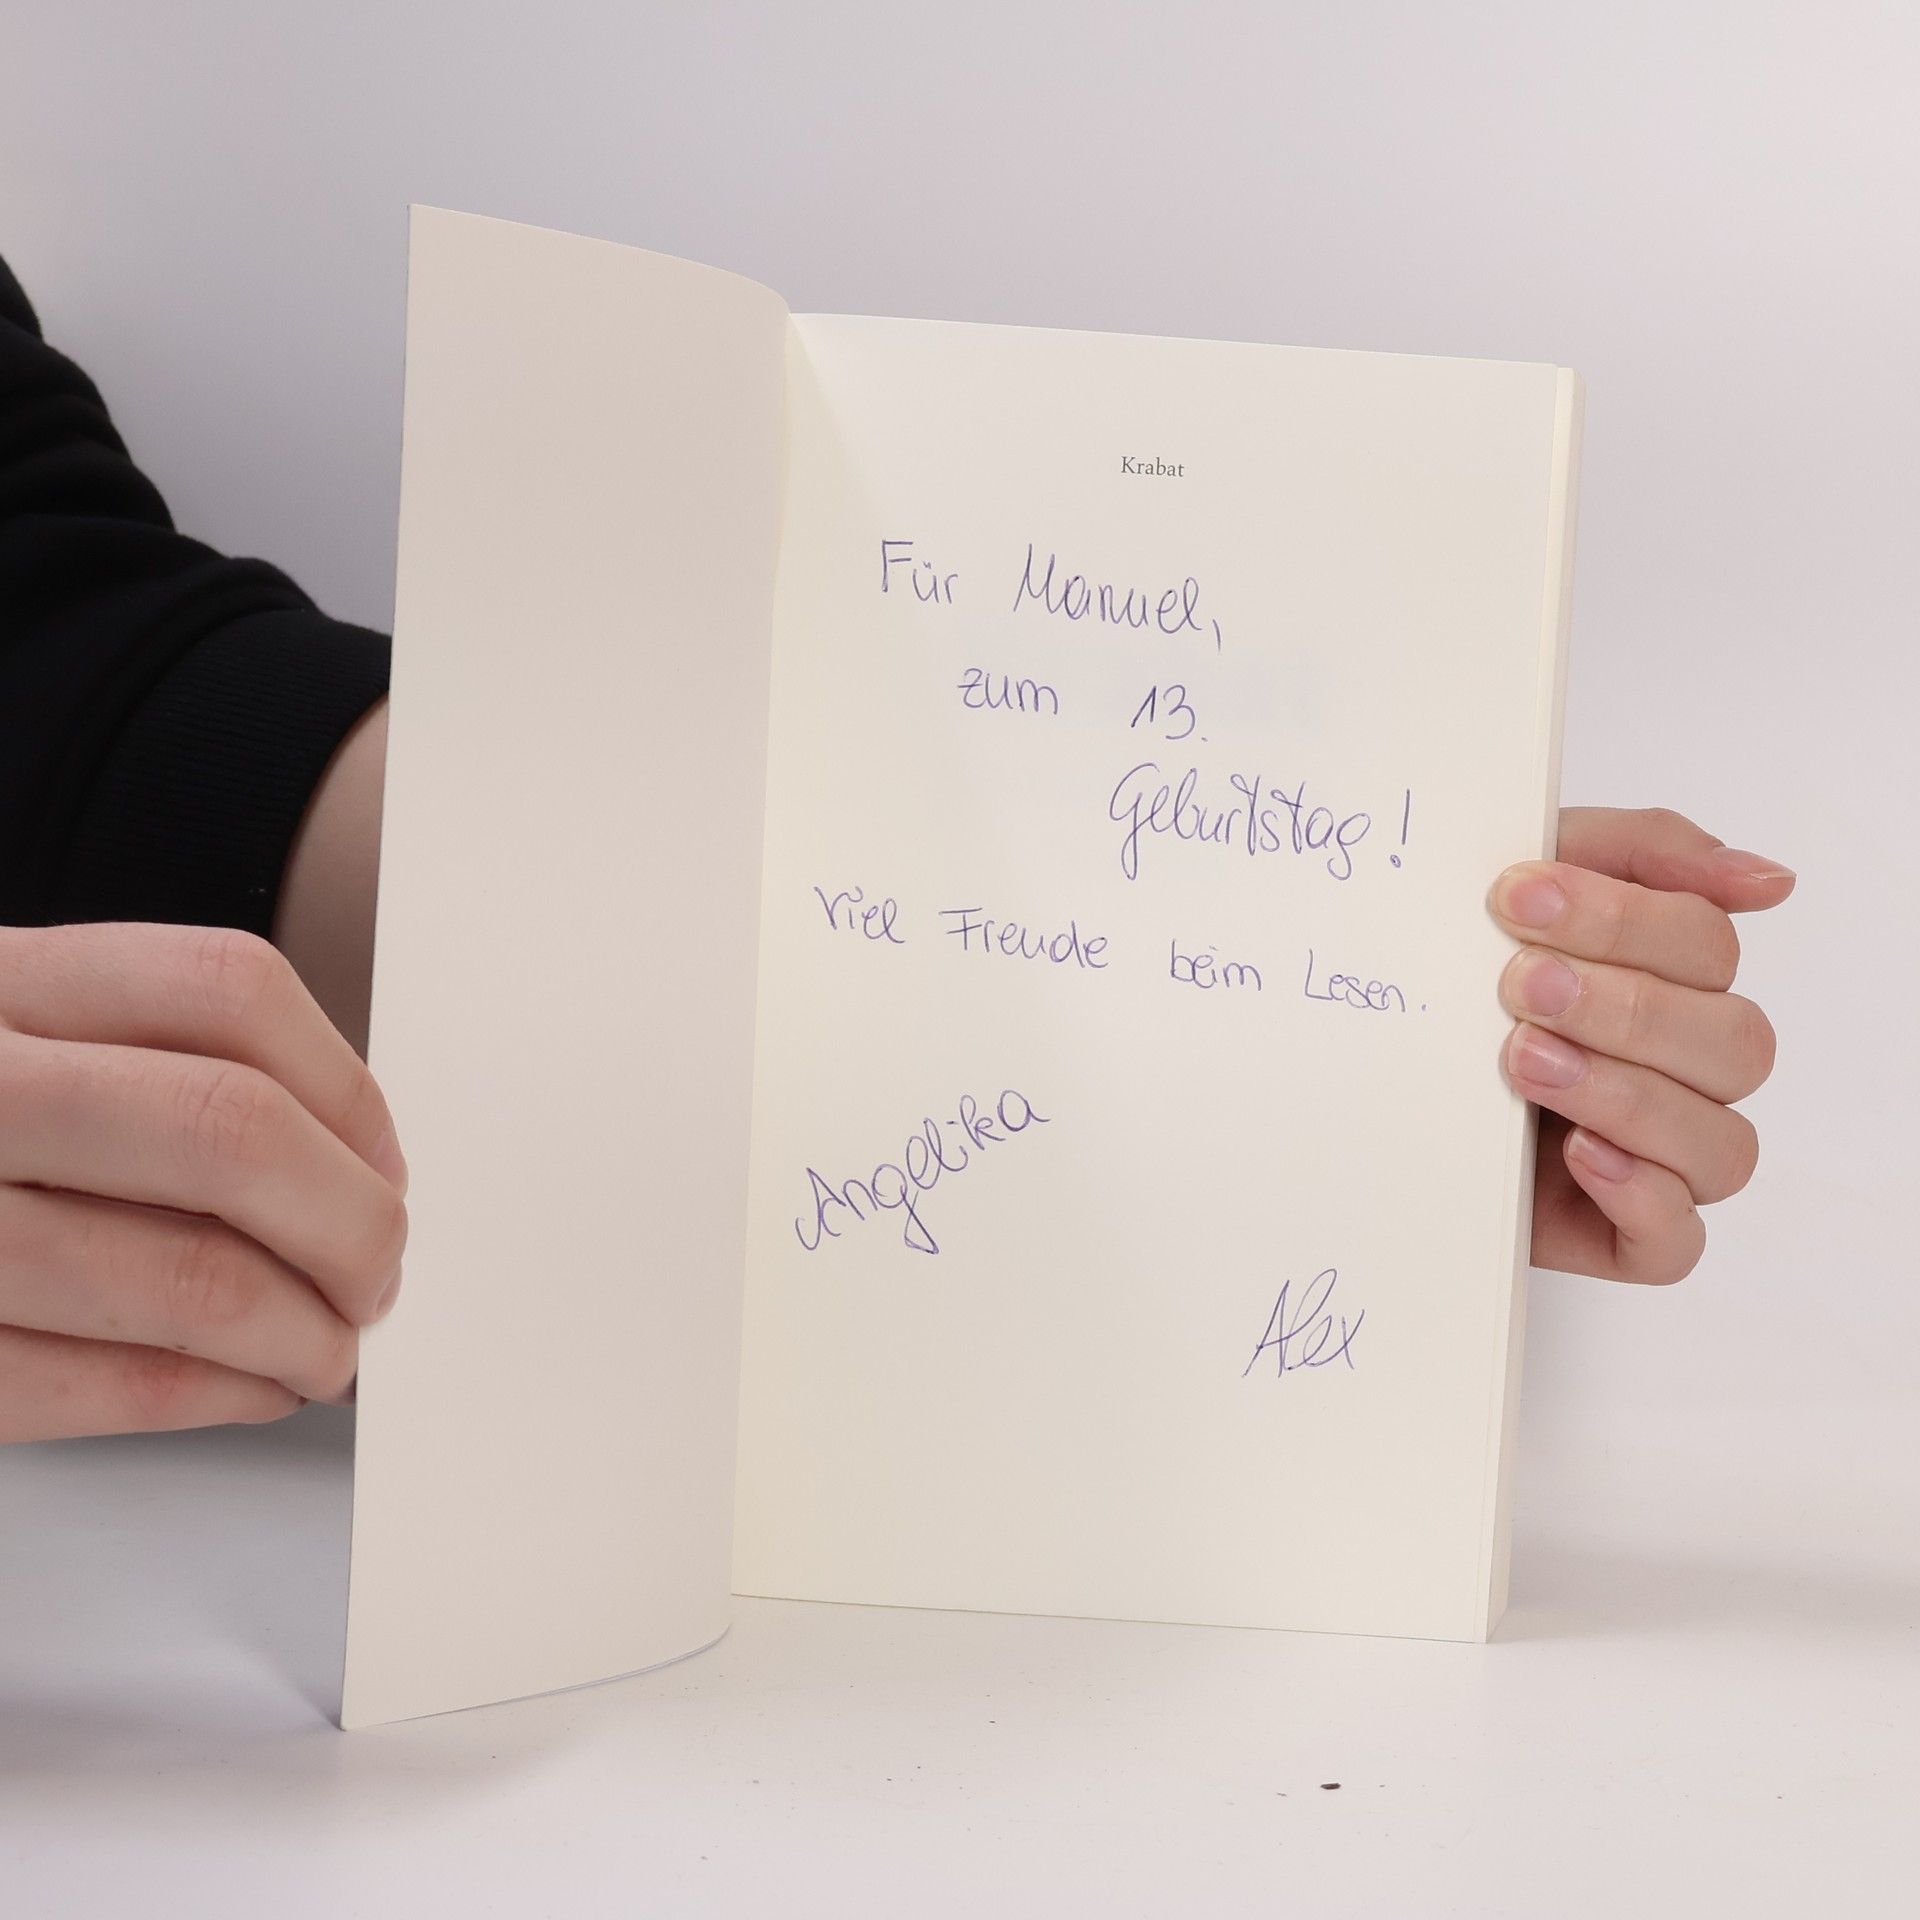 Krabat
Für Manuel,
zum 13.
Geburtstag!
Viel Freude beim Lesen.
Angelika
Alex